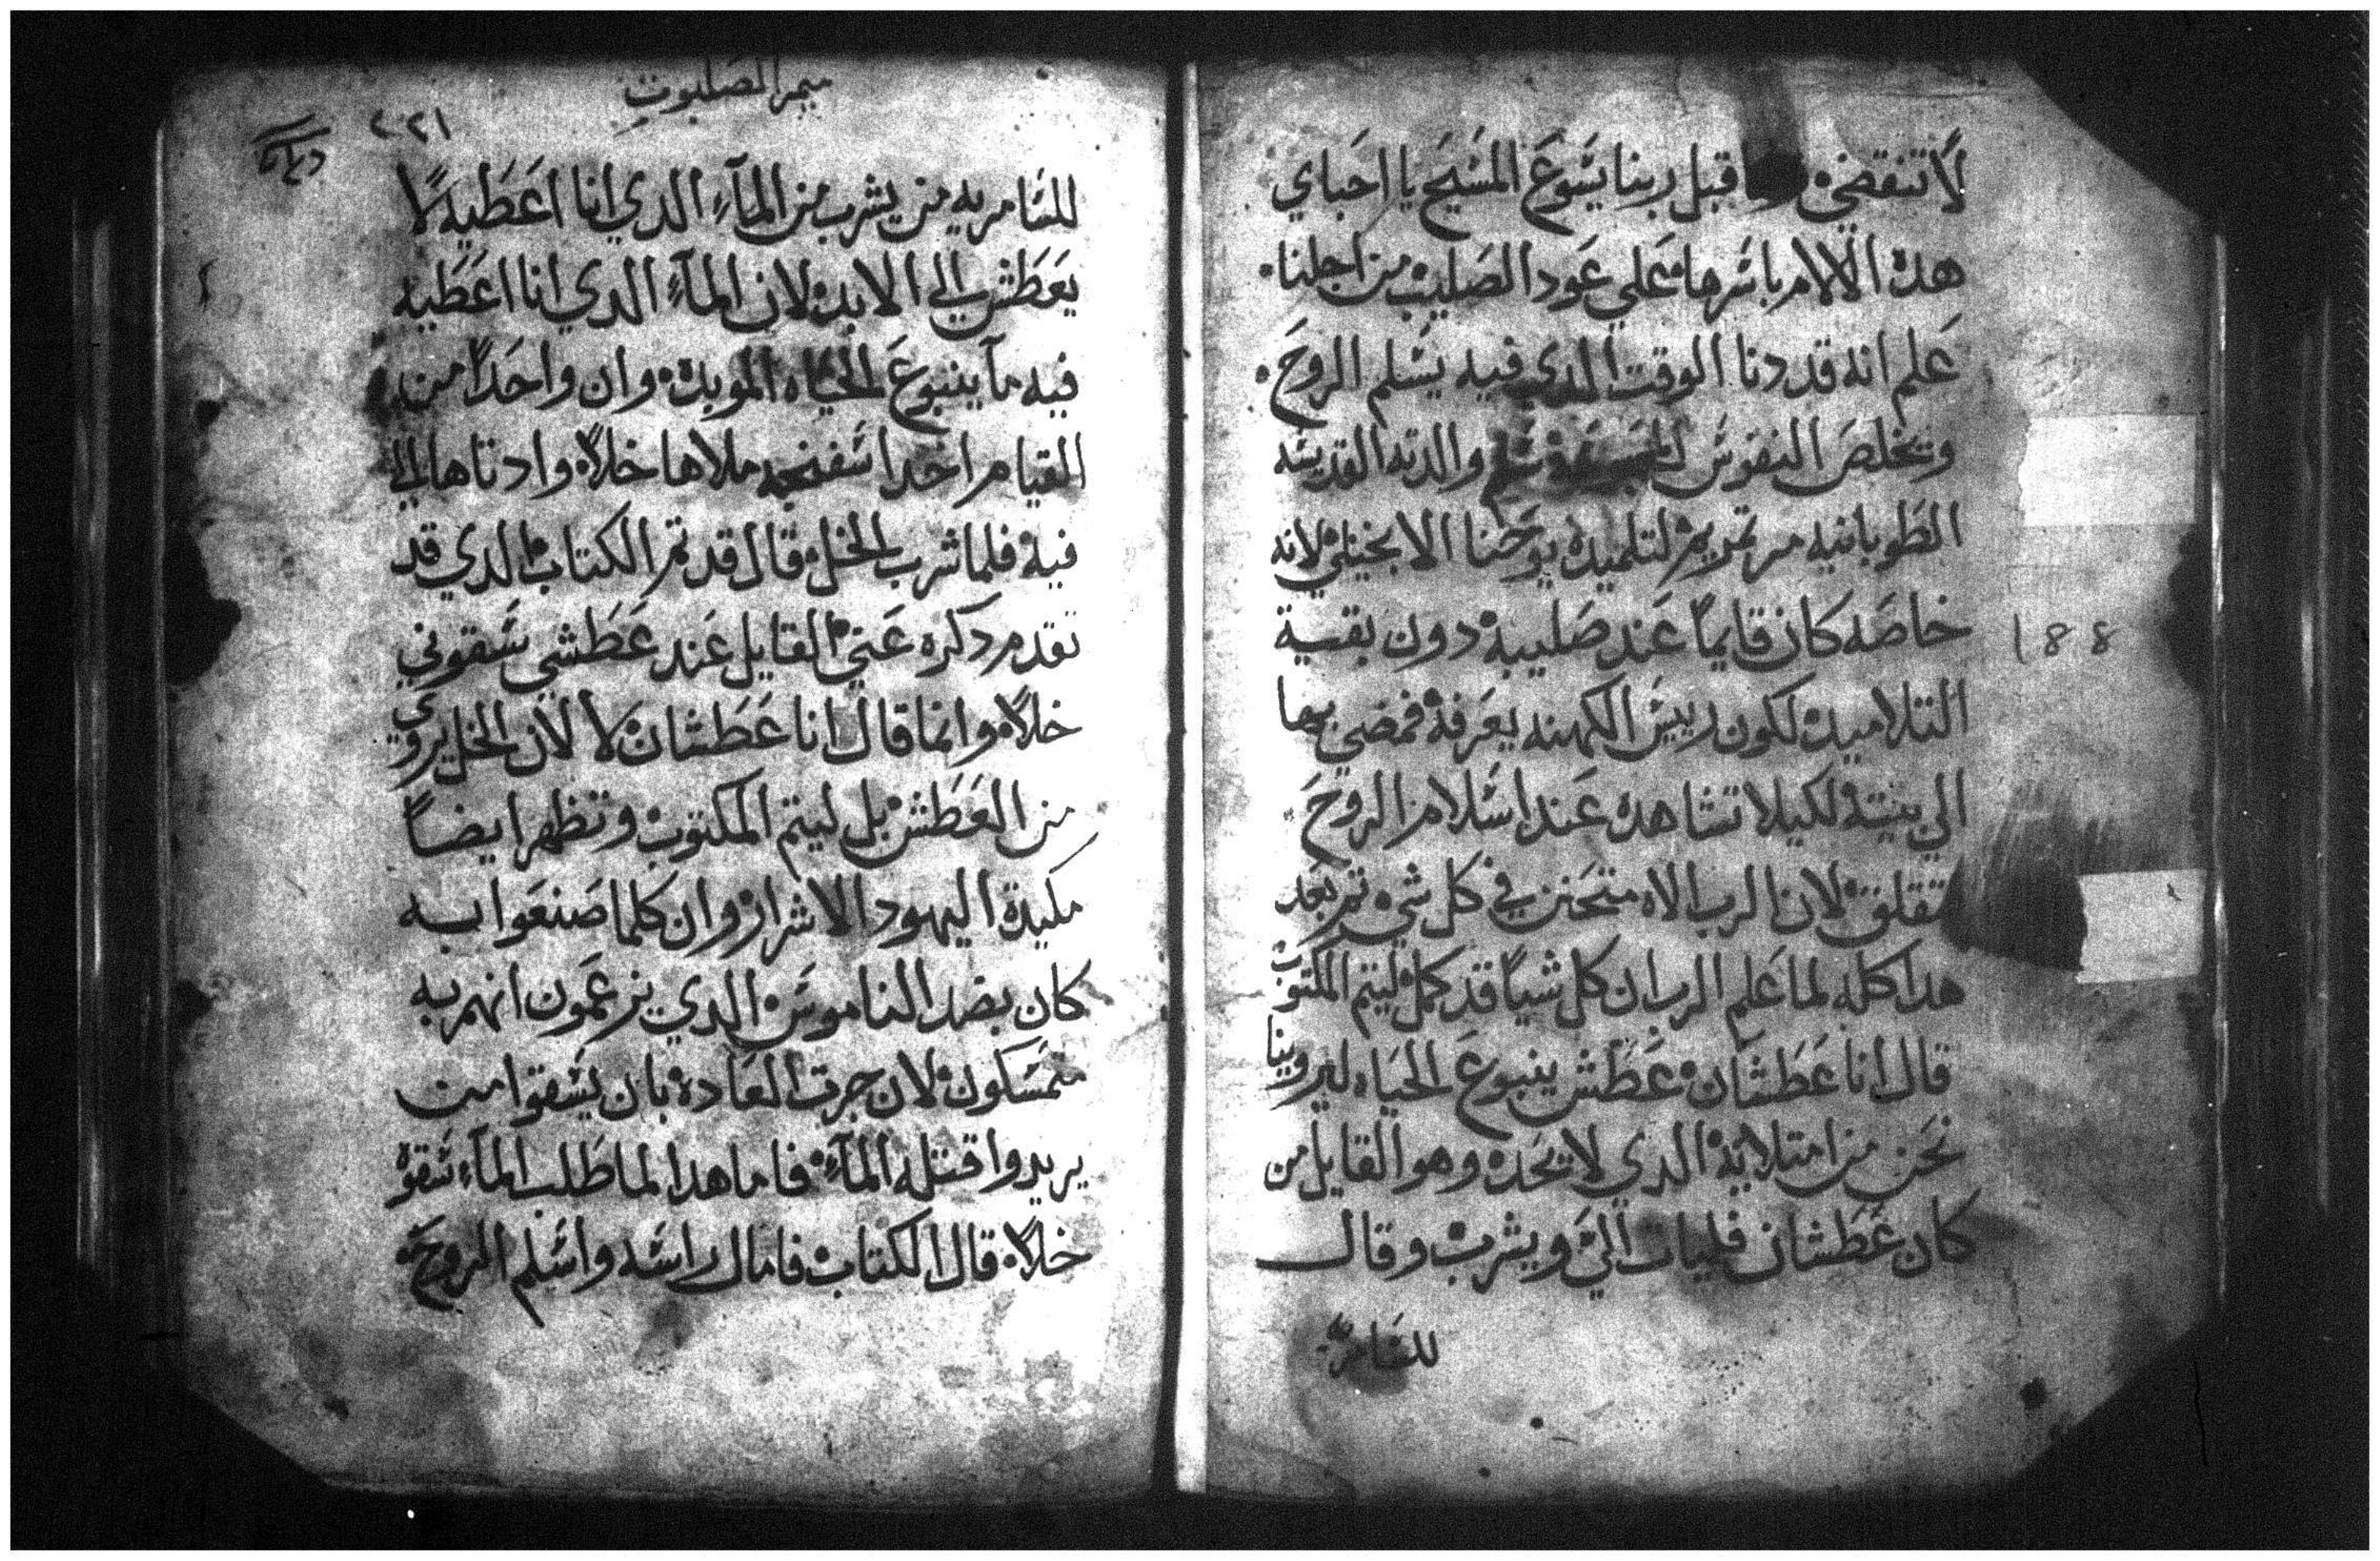 لا تنقضي قبل ربنا يسوع المسيح يا احباي
هده الالام باسرها علي عود الصليب من اجلنا
علم انه قد دنا الوقت الدي فيه يسلم الروح
وتخلص النفوس والدته القديسه
الطوبانيه مرتمريم لتلميده يوحنا الانجيلي لانه
خاصه كان قايماً عند صليبه دون بقية
التلاميد لكون رييس الكهنه يعرفه فمضي بها
الي بيته لكيلا تشاهده عند اسلام الروح
فتقلق لان الرب الاه متحنن في كل شي تم بعد
هدا كله لما علم الرب ان كل شياً قد كمل ليتم المكتوب
قال انا عطشان عطش ينبوع الحياه ليروينا
نحن من امتلايه الدي لا يحد وهو القايل من
كان عطشان فليات اليّ ويشرب وقال
للسامريه
188
ميمر الصلبوت
٢٢١
للسامريه من يشرب من المآء الدي انا اعطيه لا
يعطش الي الابد لان المآء الدي انا اعطيه
فيه مآ ينبوع الحياه الموبده وان واحداً من
القيام اخد اسفنجه ملاها خلاً وادناها الي
فيه فلما شرب الخل قال قد تم الكتاب الدي قد
تقدم دكره عني القايل عند عطشي سقوني
خلاً وانما قال انا عطشان لا لان الخل يروي
من العطش بل ليتم المكتوب وتظهر ايضاً
مكيدة اليهود الاشرار وان كلما صنعوا به
كان بضد الناموس الدي يزعمون انهم به
متمسكون لان جرت العاده بان يسقوا من
يريدوا قتله المآء فاما هدا لما طلب المآء سقوه
خلاً قال الكتاب فامال راسه واسلم الروح